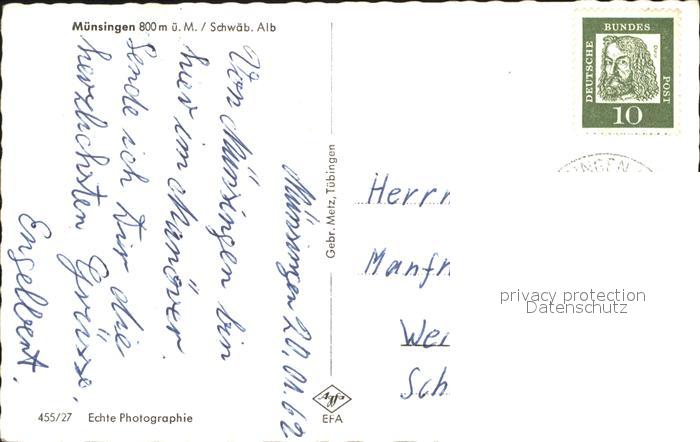 Münsingen 800 m ü. M. / Schwäb. Alb
Münsingen 20.01.62
Von Münsingen bin
hier im Manöver.
Sende ich Dir die
herzlichsten Grüsse,
Engelbert.
455/27 Echte Photographie
Gebr. Metz, Tübingen
Agfa
EFA
DEUTSCHE
BUNDES
POST
Dürer
10
INGEN
Herrn
Manfr
Wei
Sch
privacy protection
Datenschutz